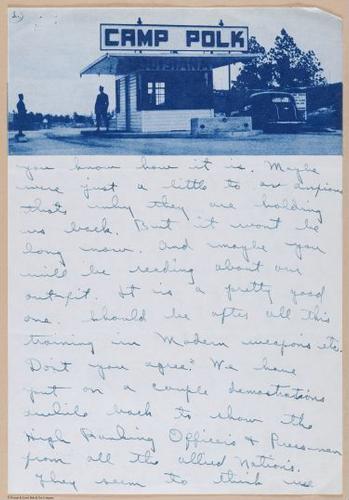 2.)
CAMP POLK
LOUISIANA
you know how it is. Maybe
were just a little to anxious
thats why they are holding
us back. But it wont be
long now. And maybe you
will be reading about our
outfit. It is a pretty good
one. Should be after all this
training in Modern weapons etc.
Don't you agree? We have
put on a couple demostrations
while back to show the
High Ranking Officers & Pressmen
from all the allied Nations.
They seem to think we